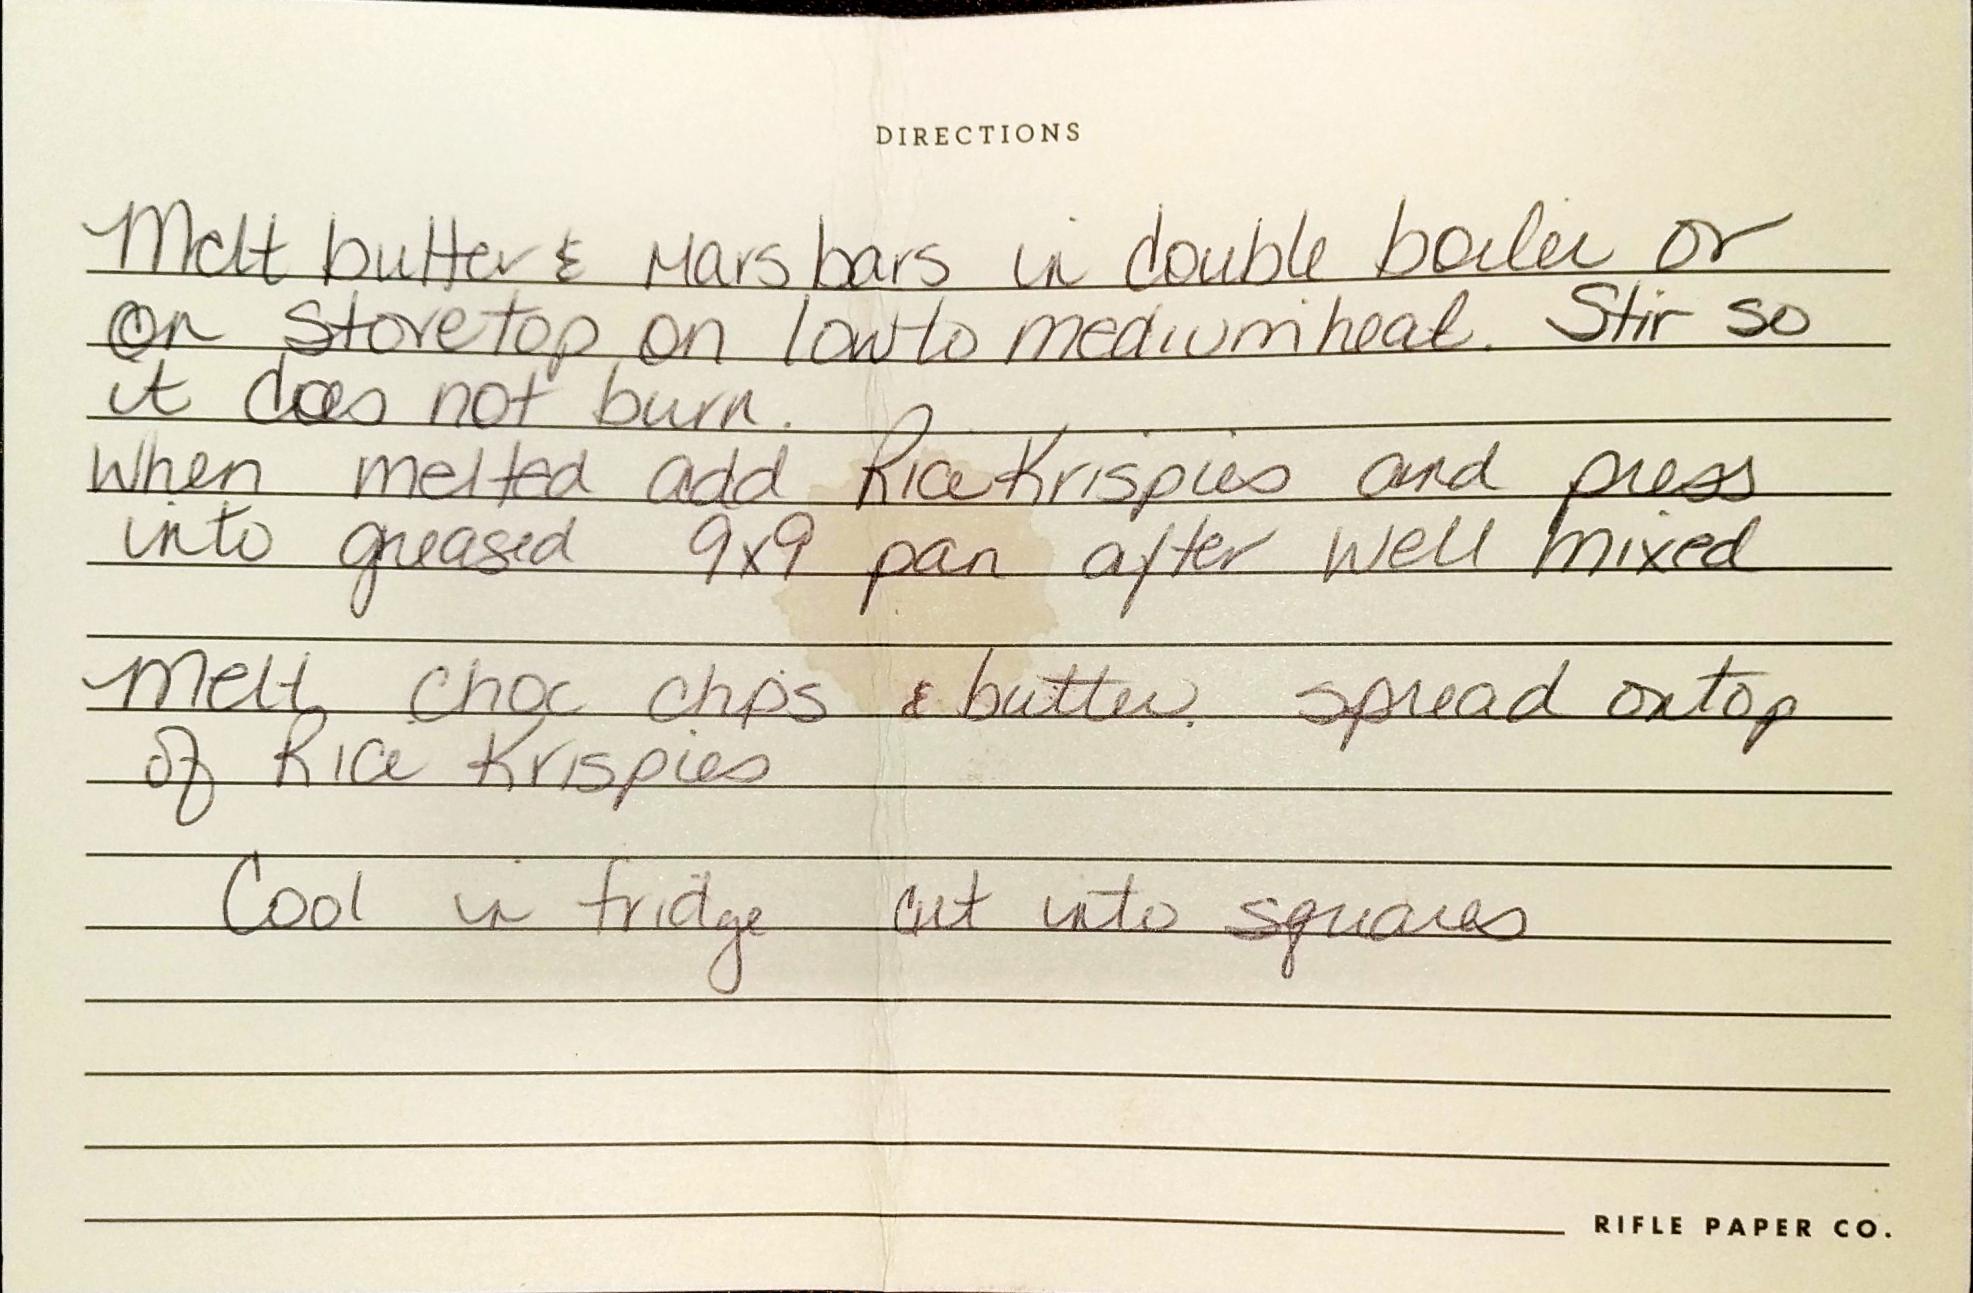 DIRECTIONS
Melt butter & Mars bars in double boiler or
on stovetop on low to medium heat. Stir so
it does not burn.
When melted add Rice Krispies and press
into greased 9x9 pan after well mixed
Melt choc chps & butter. spread on top
of Rice Krispies
Cool in fridge cut into squares
RIFLE PAPER CO.